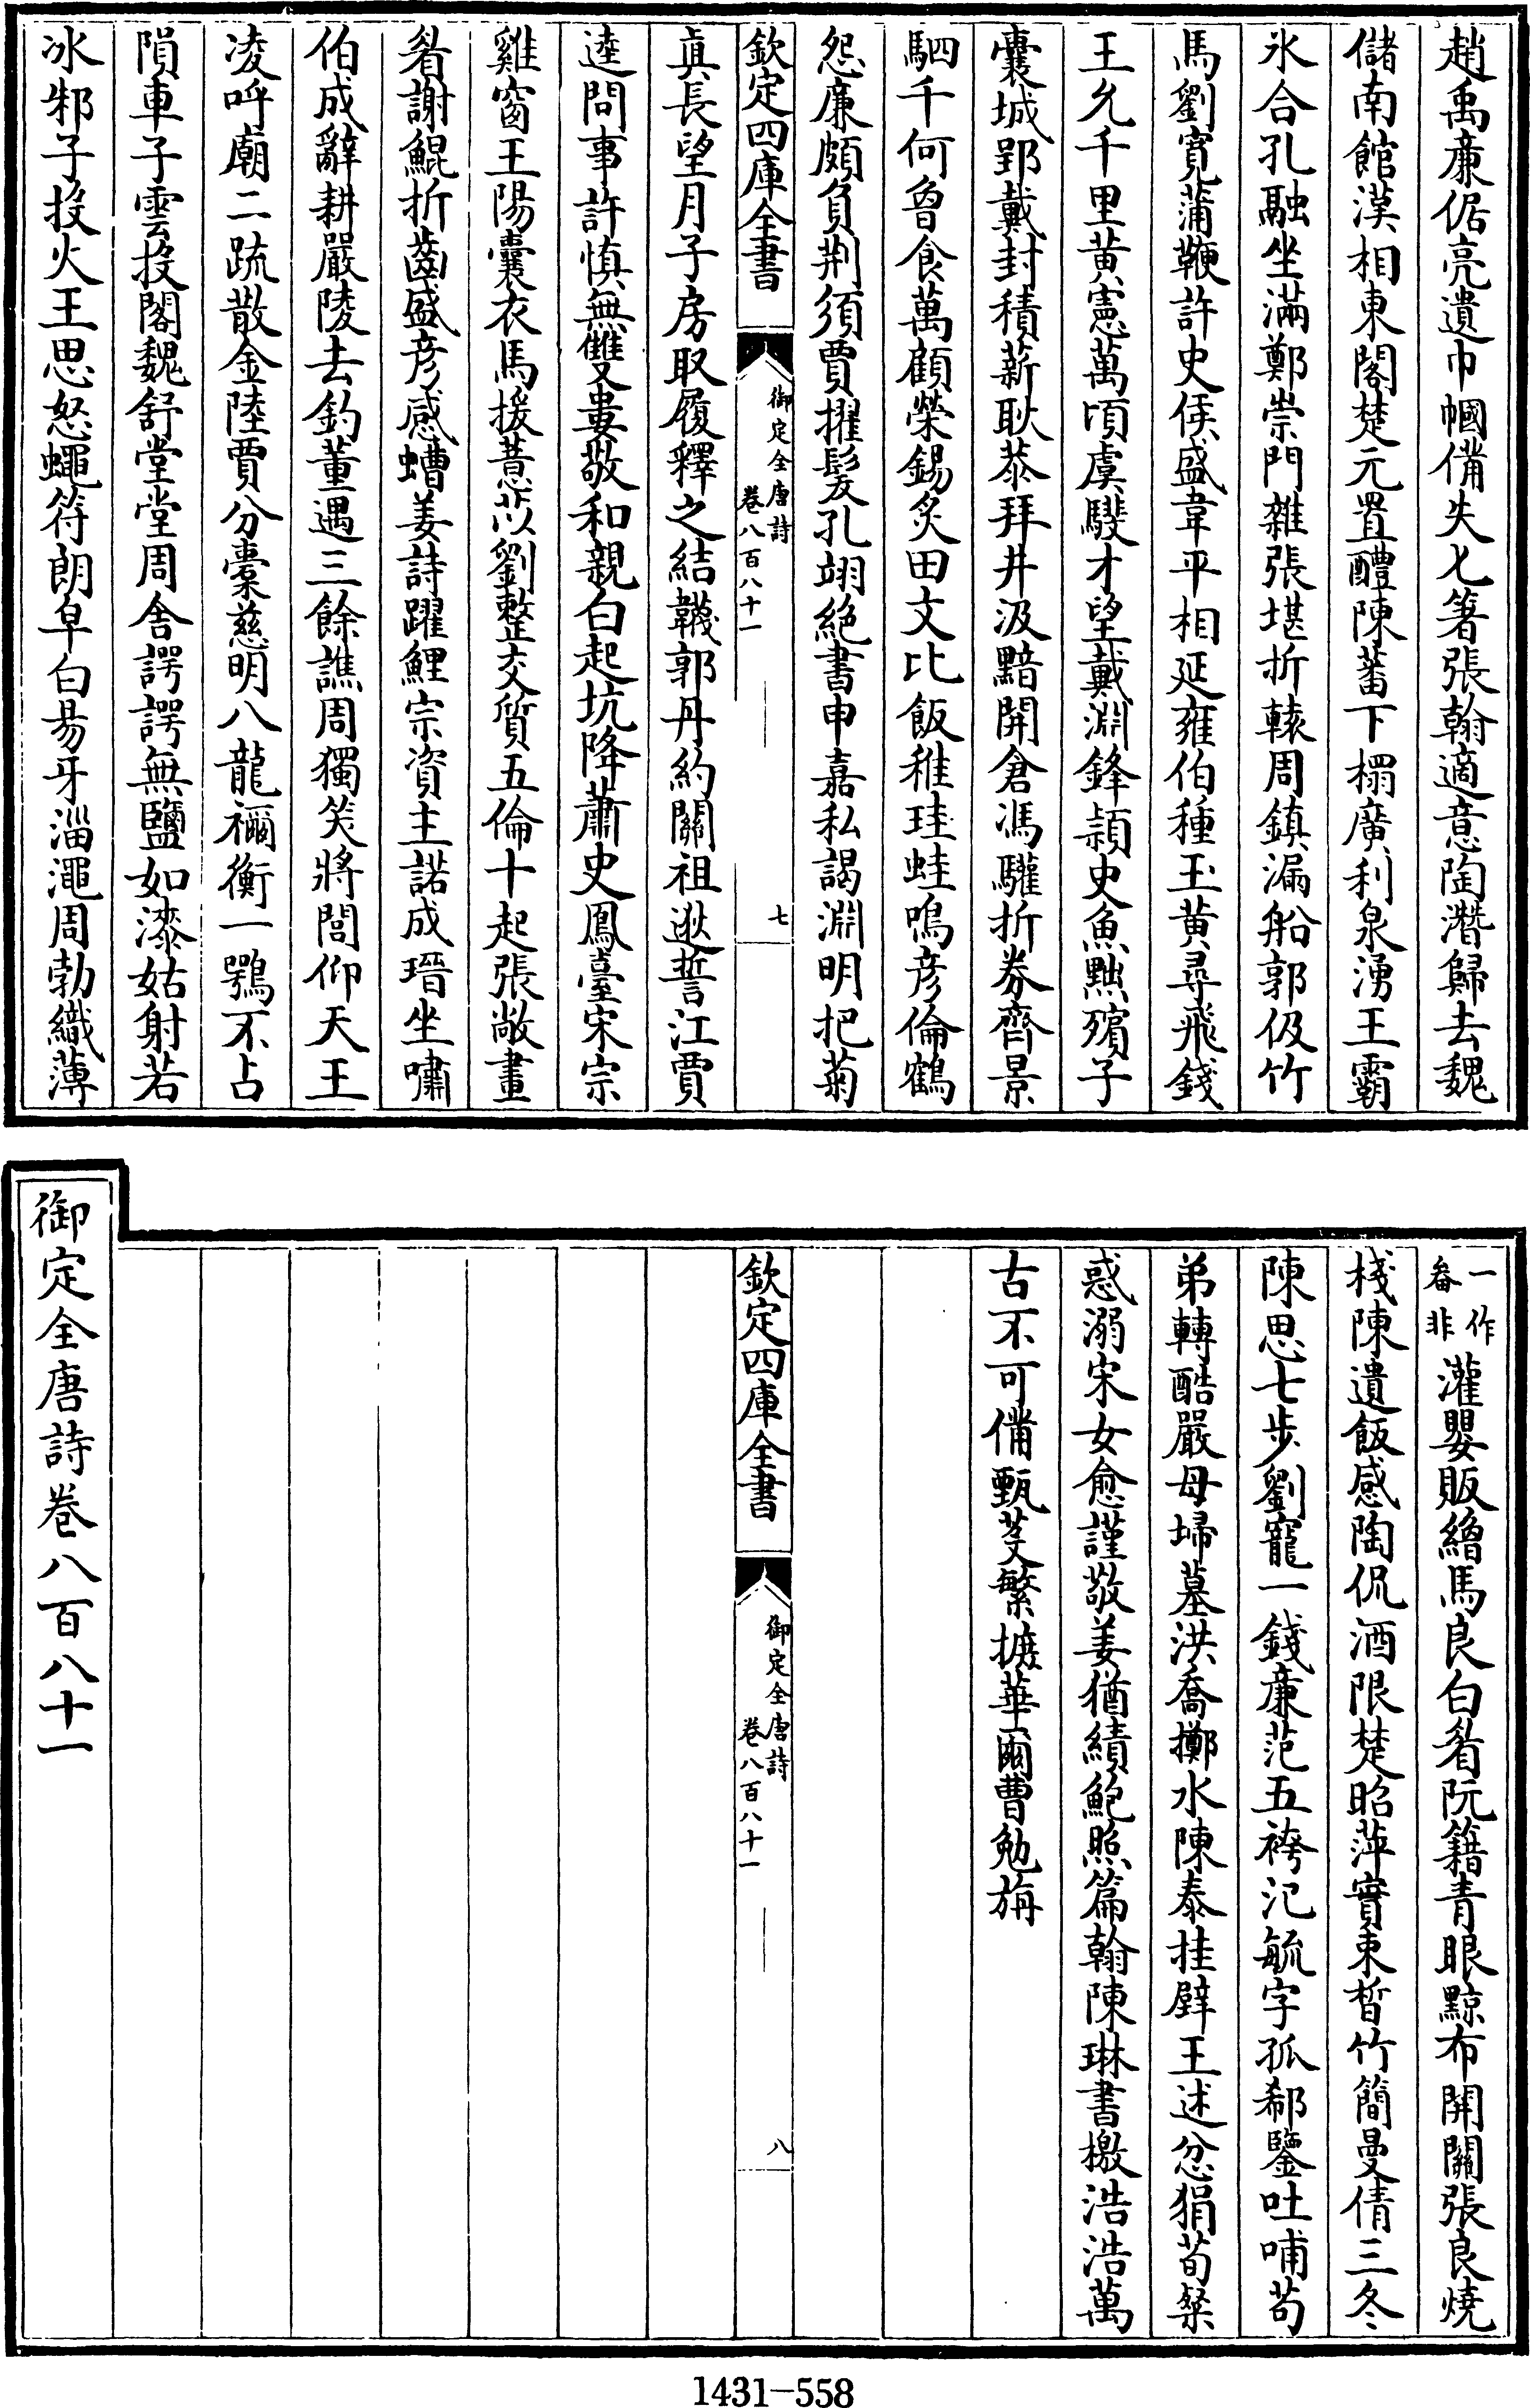 趙禹廉倨亮遺巾幗備失匕箸張翰適意陶潛歸去魏
儲南館漢相東閣楚元置醴陳蕃下榻廣利泉湧王霸
氷合孔融坐滿鄭崇門雜張堪折轅周鎮漏船郭伋竹
馬劉寬蒲鞭許史侯盛韋平相延雍伯種玉黃尋飛錢
王允千里黃憲萬頃虞騑才望戴淵鋒頴史魚黜殯子
囊城郢戴封積薪耿恭拜井汲黯開倉馮驩折券齊景
駟千何曾食萬顧榮錫炙田文比飯稚珪蛙鳴彦倫鶴
怨廉頗負荆須賈擢髮孔翊絶書申嘉私謁淵明把菊
欽定四庫全書
御定全唐詩
卷八百八十一
七
眞長望月子房取履釋之結韈郭丹約關祖逖誓江賈
逵問事許慎無雙婁敬和親白起坑降蕭史鳳臺宋宗
雞窗王陽囊衣馬援薏苡劉整交質五倫十起張敞畫
眉謝鯤折齒盛彦感螬姜詩躍鯉宗資主諾成瑨坐嘯
伯成辭耕嚴陵去釣董遇三餘譙周獨笑將閭仰天王
凌呼廟二疏散金陸賈分橐慈明八龍禰衡一鶚不占
隕車子雲投閣魏舒堂堂周舍諤諤無鹽如漆姑射若
冰邾子投火王思怒蠅符朗皁白易牙淄澠周勃織薄
一作畚非灌嬰販繒馬良白眉阮籍青眼黥布開關張良燒
棧陳遺飯感陶侃酒限楚昭萍實束晳竹簡曼倩三冬
陳思七步劉寵一錢廉范五袴氾毓字孤郗鑒吐哺茍
弟轉酷嚴母埽墓洪喬擲水陳泰挂壁王述忿狷荀粲
惑溺宋女愈謹敬姜猶績鮑照篇翰陳琳書檄浩浩萬
古不可備甄芟繁摭華爾曹勉旃
欽定四庫全書
御定全唐詩
卷八百八十一
八
御定全唐詩卷八百八十一
1431-558